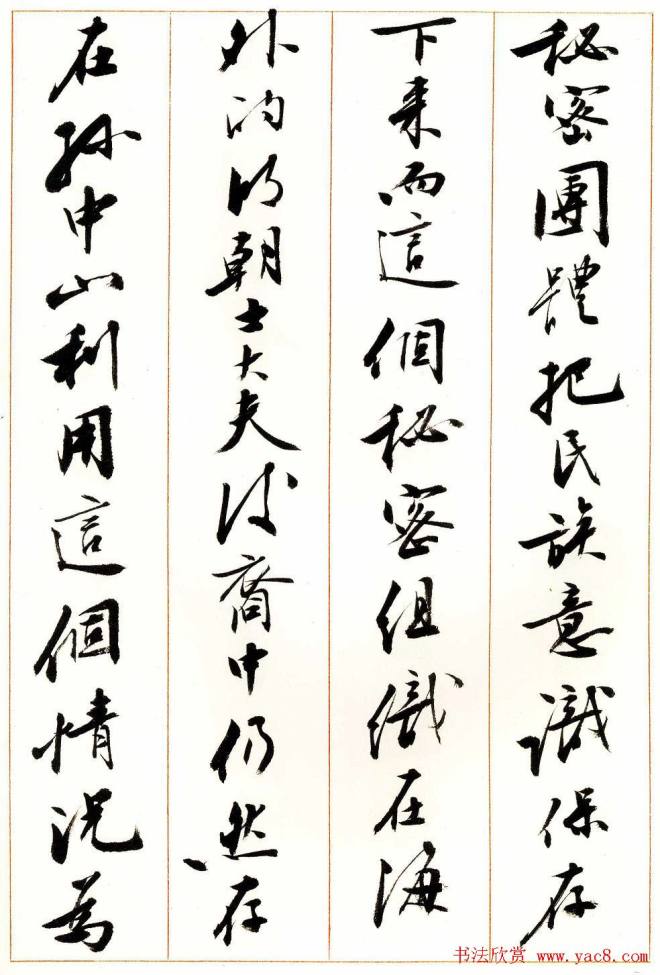 秘密團體把民族意識保存
下来而這個秘密组織在海
外的明朝士大夫後裔中仍然存
在孙中山利用這個情况为
书法欣赏 www.yac8.com